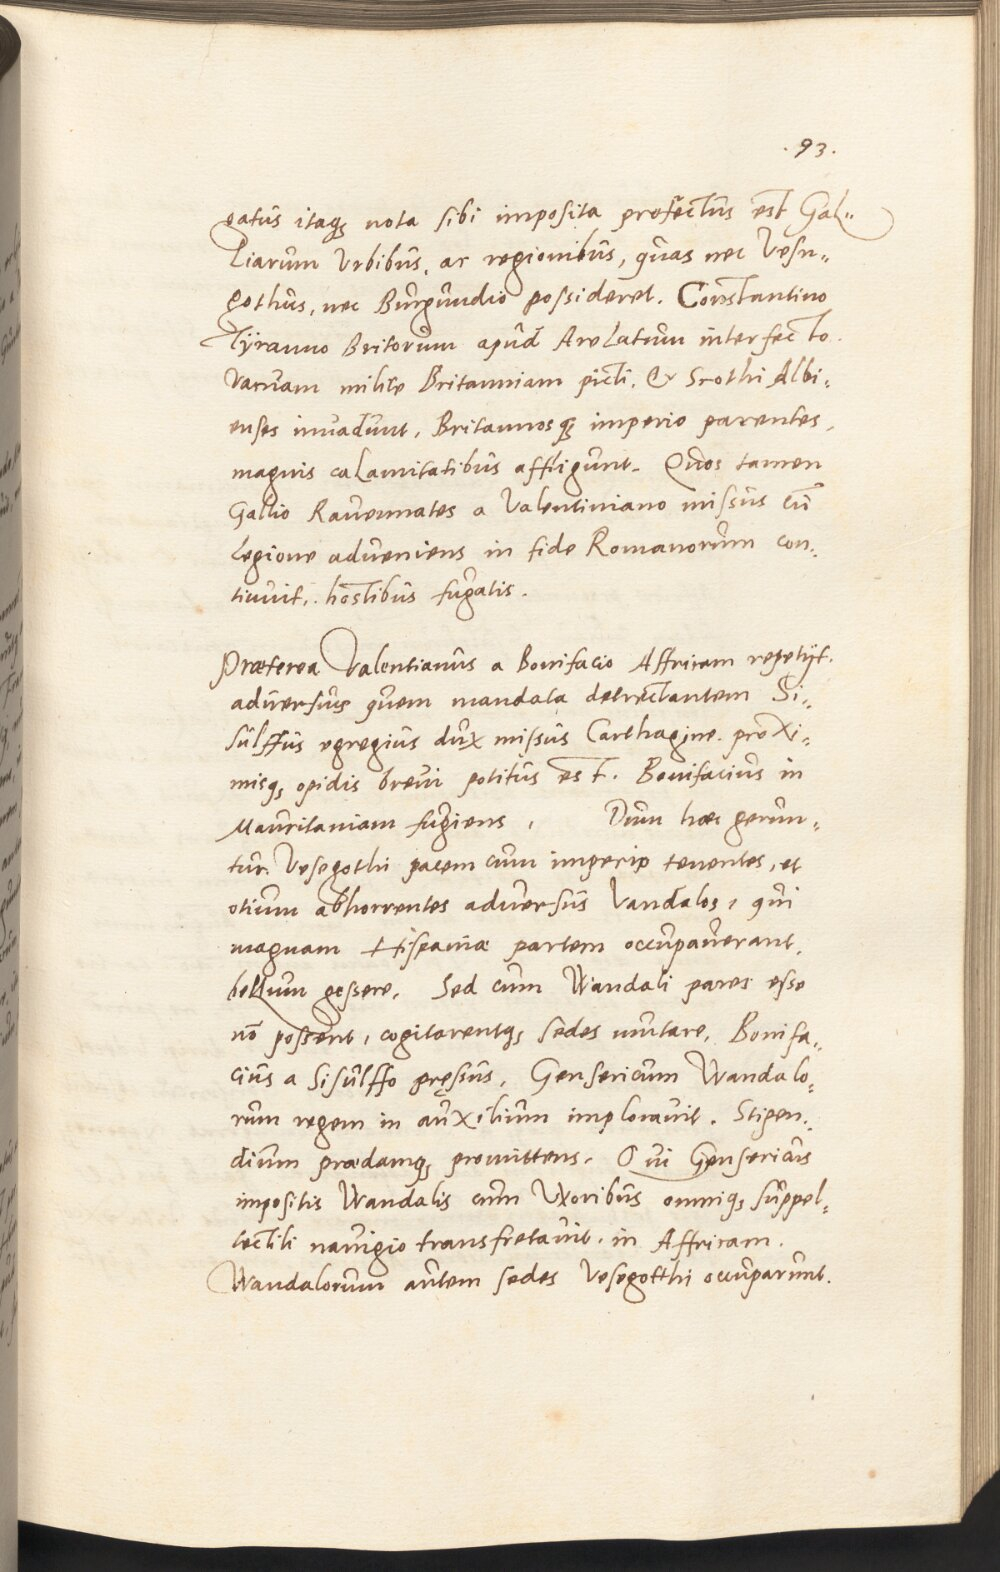 .93.
gatus itaq; nota sibi imposita præfectus est Gal-
liarum Urbibus, ac regionibus, quas nec Vesu-
gothus, nec Burgundio possideret. Constantino
Tÿranno Britorum apud Arelatum interfecto.
vacuam milite Britanniam picti, & Scothi Albi-
enses invadunt, Britannosq; imperio parentes,
magnis calamitatibus affligunt. Quos tamen
Gallio Ravennates a Valentiniano missus cū
legione adveniens in fide Romanorum con-
tinuit, hostibus fugatis.
Præterea Valentianus a Bonifacio Affricam repetijt.
adversus quem mandata detrectantem Si-
sulffus egregius dux missus Carthagine proxi-
misq; opidis brevi potitus est. Bonifacius in
Mauritaniam fugiens, Dum hæc gerun-
tur. Vesegothi pacem cum imperio tenentes, et
otium abhorrentes adversus Vandalos, qui
magnam Hispaniæ partem occupaverant,
bellum gessere, Sed cum Wandali pares esse
nō possent, cogitarentq; sedes mutare, Bonifa-
cius a Sisulffo pręssus, Gensericum Wandalo-
rum regem in auxilium imploravit. Stipen-
dium prædamq; promittens. Qui Gensericus
impositis Wandalis cum Uxoribus omniq; suppel-
lectili navigio transfretavit. in Affricam.
Wandalorum autem sedes Vesegotthi occuparunt.